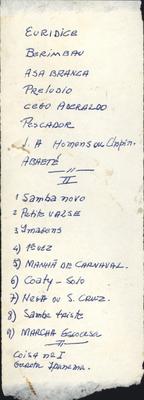 EURIDICE
BERIMBAU
ASA BRANCA
PRELUDIO
CEGO ADERALDO
PESCADOR
A Homens ou Chopin.
ABAETÉ
II
1 Samba novo
2 Petite VALSE
3 Imagens
4)
5) MANHÃ DE CARNAVAL.
6) Coaty - Solo
7) ou S. CRUZ.
8) Samba triste
9) MARCHA Escocesa
Coisa nº I
Garota Ipanema.